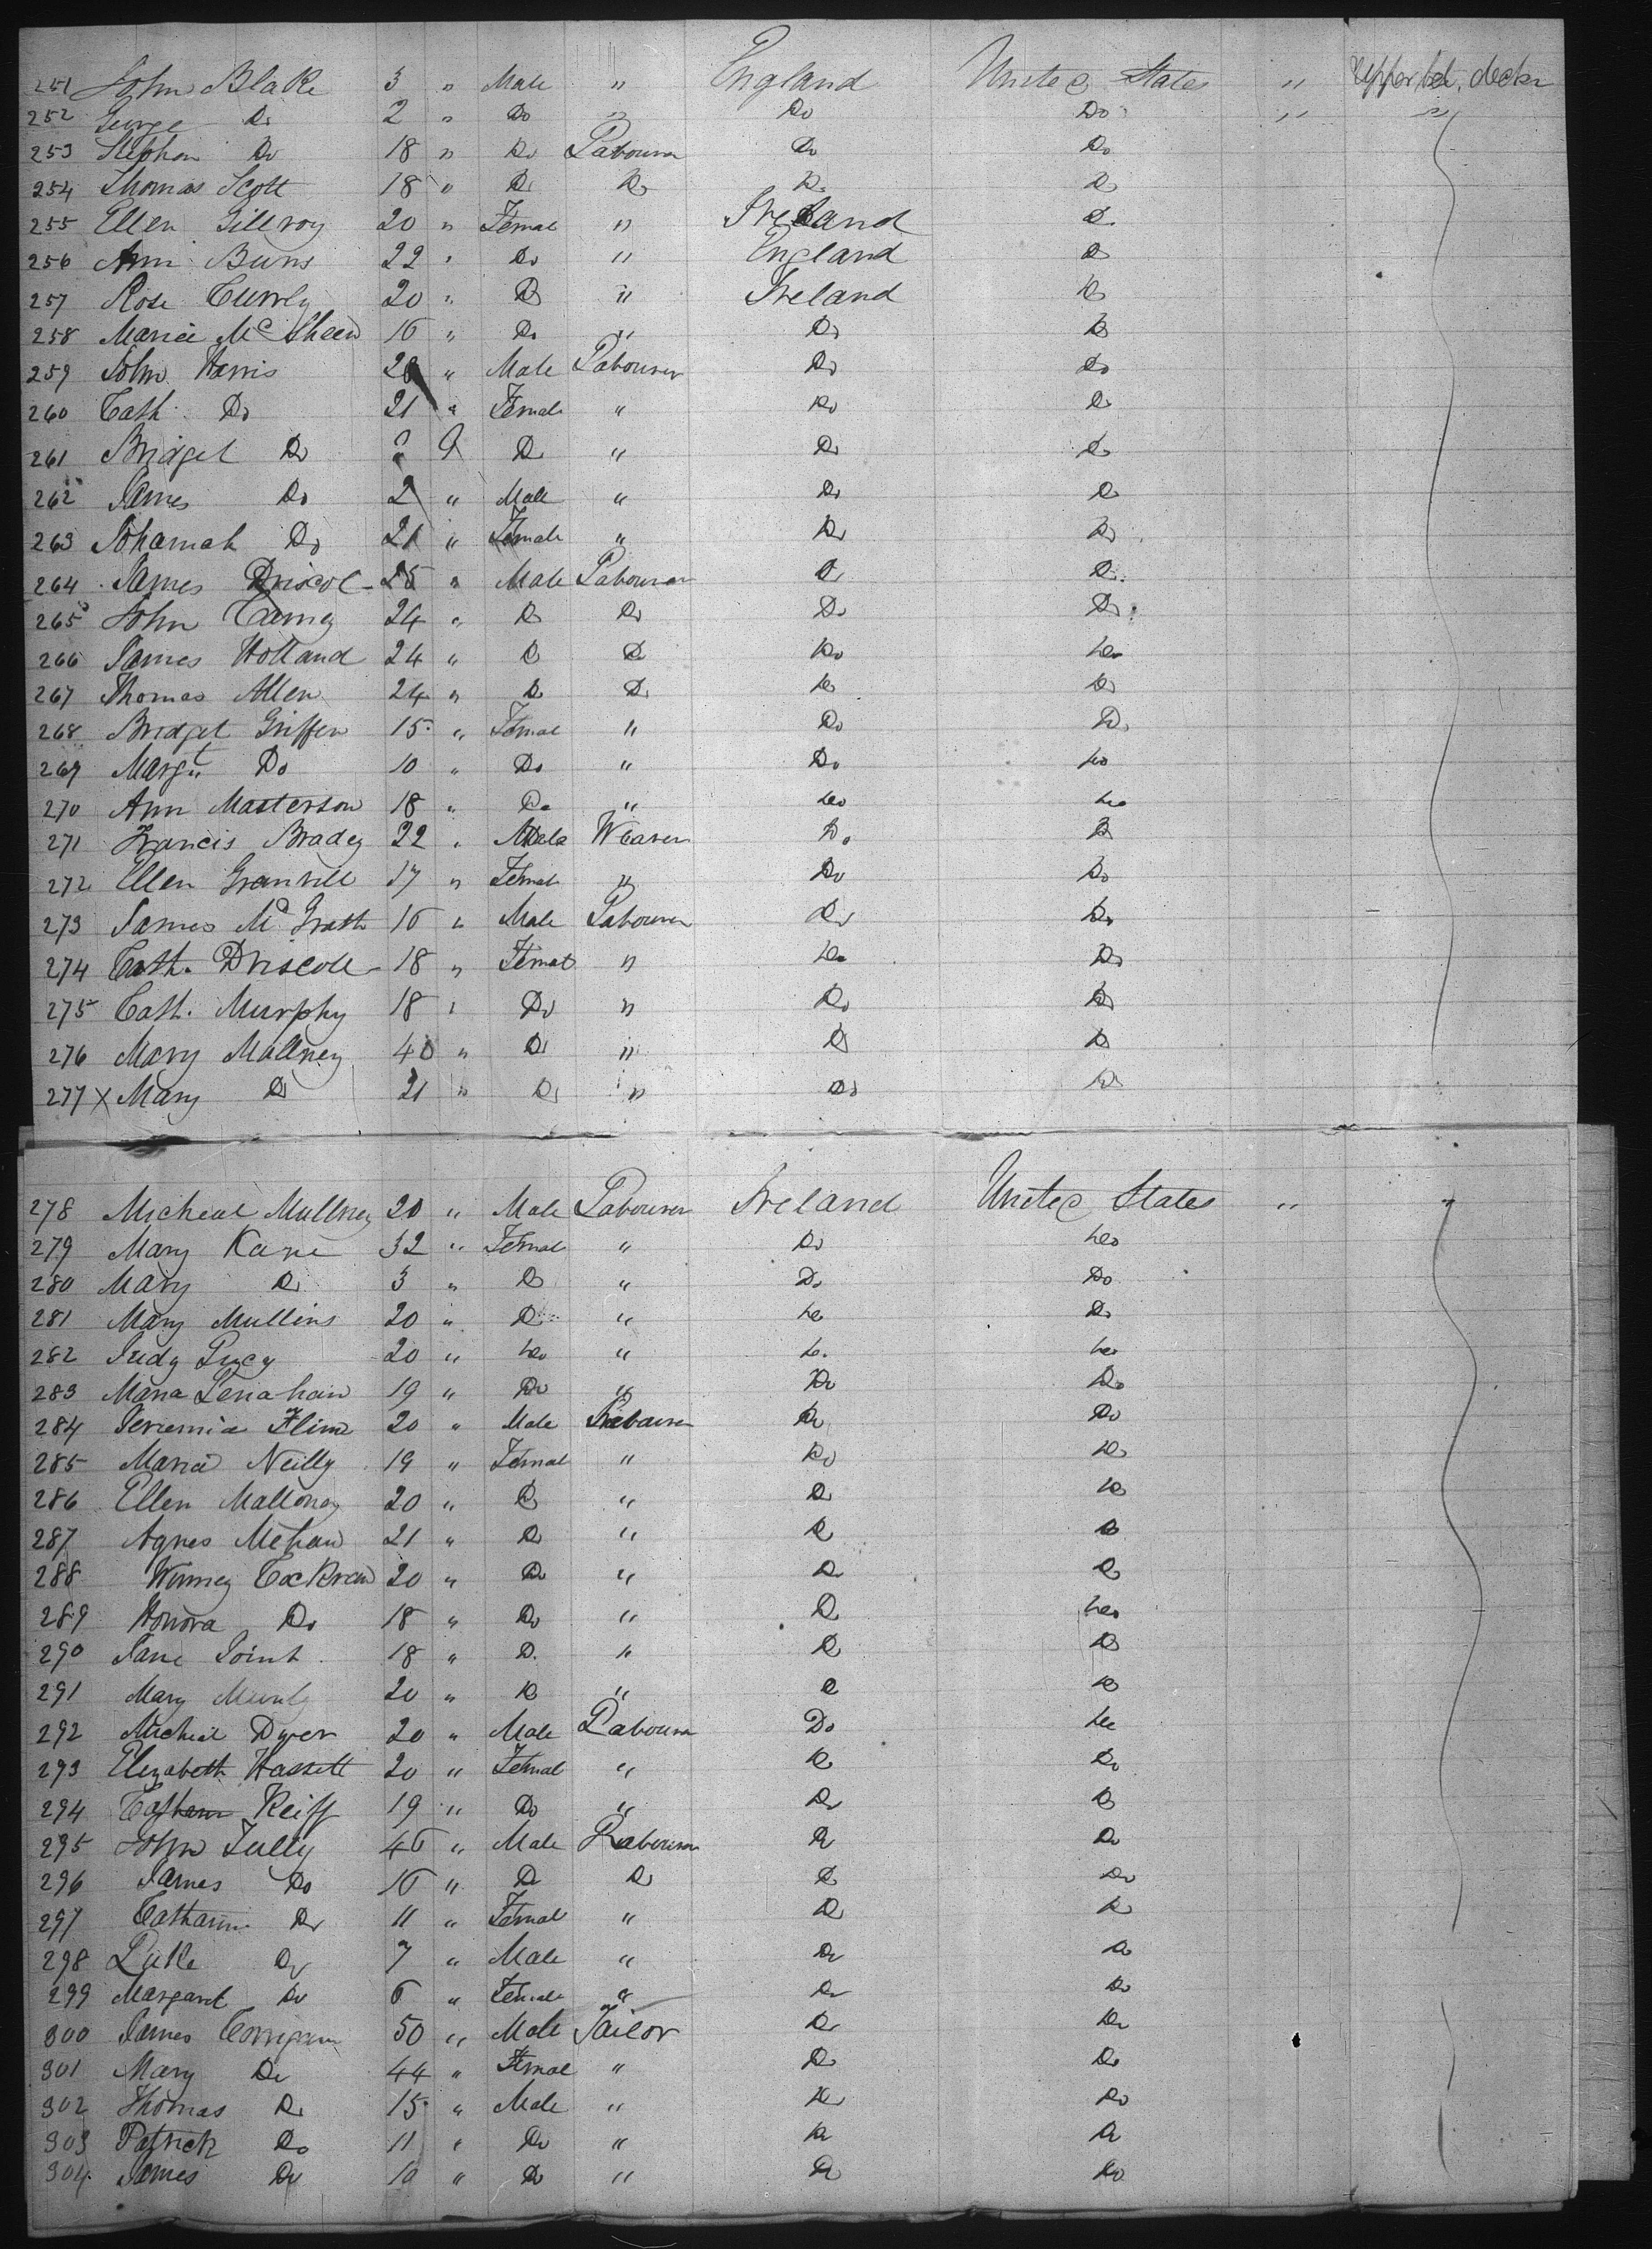 251 John Blake 3 " Male " England United States " Upper bet. decks
252 George Do 2 " Do " Do Do " "
253 Stephen Do 18 " Do Labourer Do Do
254 Thomas Scott 18 " Do Do Do Do
255 Ellen Gillroy 20 " Female " Ireland Do
256 Ann Burns 22 " Do " England Do
257 Rose Currly 20 " Do " Ireland Do
258 Maria Mc Sheen 16 " Do " Do Do
259 John Harris " Male Labourer Do Do
260 Cath. Do 21 " Female " Do Do
261 Bridget Do 9 Do " Do Do
262 James Do 2 " Male " Do Do
263 Johannah Do 21 " Female " Do Do
264 James Driscol 25 " Male Labourer Do Do
265 John 24 " Do Do Do Do
266 James Holland 24 " Do Do Do Do
267 Thomas Allen 24 " Do Do Do Do
268 Bridget Griffen 15 " Female " Do Do
269 Margt Do 10 " Do " Do Do
270 Ann Masterson 18 " Do " Do Do
271 Francis Bradey 22 " Male Weaver Do Do
272 Ellen Granvill 17 " Female " Do Do
273 James Mc Grath 16 " Male Labourer Do Do
274 Cath. Driscoll 18 " Female " Do Do
275 Cath. Murphy 18 " Do " Do Do
276 Mary Mallney 40 " Do " Do Do
277 x Mary Do 21 " Do " Do Do
278 Micheal Mullney 20 " Male Labourer Ireland United States " "
279 Mary Kane 32 " Female " Do Do
280 Mary Do 3 " Do " Do Do
281 Mary Mullins 20 " Do " Do Do
282 Judy Lucy 20 " Do " Do Do
283 Maria Lenahan 19 " Do " Do Do
284 Jeremia Flinn 20 " Male Labourer Do Do
285 Maria Neilly 19 " Female " Do Do
286 Ellen Malloney 20 " Do " Do Do
287 Agnes Mehan 21 " Do " Do Do
288 Winney Cockran 20 " Do " Do Do
289 Honora Do 18 " Do " Do Do
290 Jane Joint 18 " Do " Do Do
291 Mary 20 " Do " Do Do
292 Micheal Dyer 20 " Male Labourer Do Do
293 Elizabeth Hassett 20 " Female " Do Do
294 Keiff 19 " Do " Do Do
295 John Tully 46 " Male Labourer Do Do
296 James Do 16 " Do Do Do Do
297 Catharine Do 11 " Female " Do Do
298 Luke Do 7 " Male " Do Do
299 Margaret Do 6 " Female " Do Do
300 James Corrigan 50 " Male Tailor Do Do
301 Mary Do 44 " Femal " Do Do
302 Thomas Do 15 " Male " Do Do
303 Patrick Do 11 " Do " Do Do
304 James Do 10 " Do " Do Do